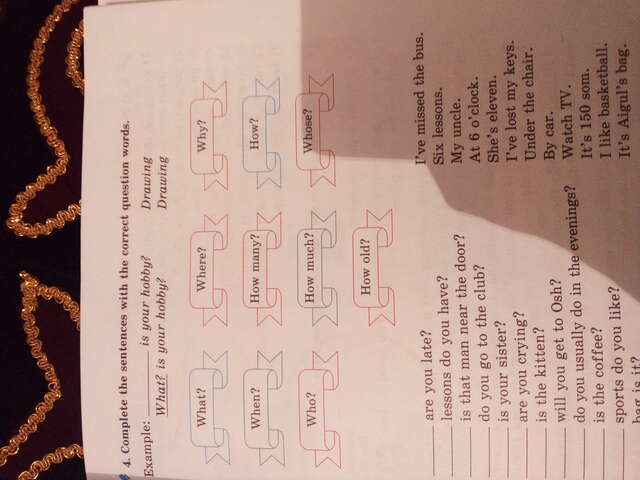 4. Complete the sentences with the correct question words.
Example: ________ is your hobby? Drawing
What? is your hobby? Drawing
What? Where? Why?
When? How many? How?
Who? How much? Whose?
How old?
________ are you late? I've missed the bus.
________ lessons do you have? Six lessons.
________ is that man near the door? My uncle.
________ do you go to the club? At 6 o'clock.
________ is your sister? She's eleven.
________ are you crying? I've lost my keys.
________ is the kitten? Under the chair.
________ will you get to Osh? By car.
________ do you usually do in the evenings? Watch TV.
________ is the coffee? It's 150 som.
________ sports do you like? I like basketball.
bag is it? It's Aigul's bag.